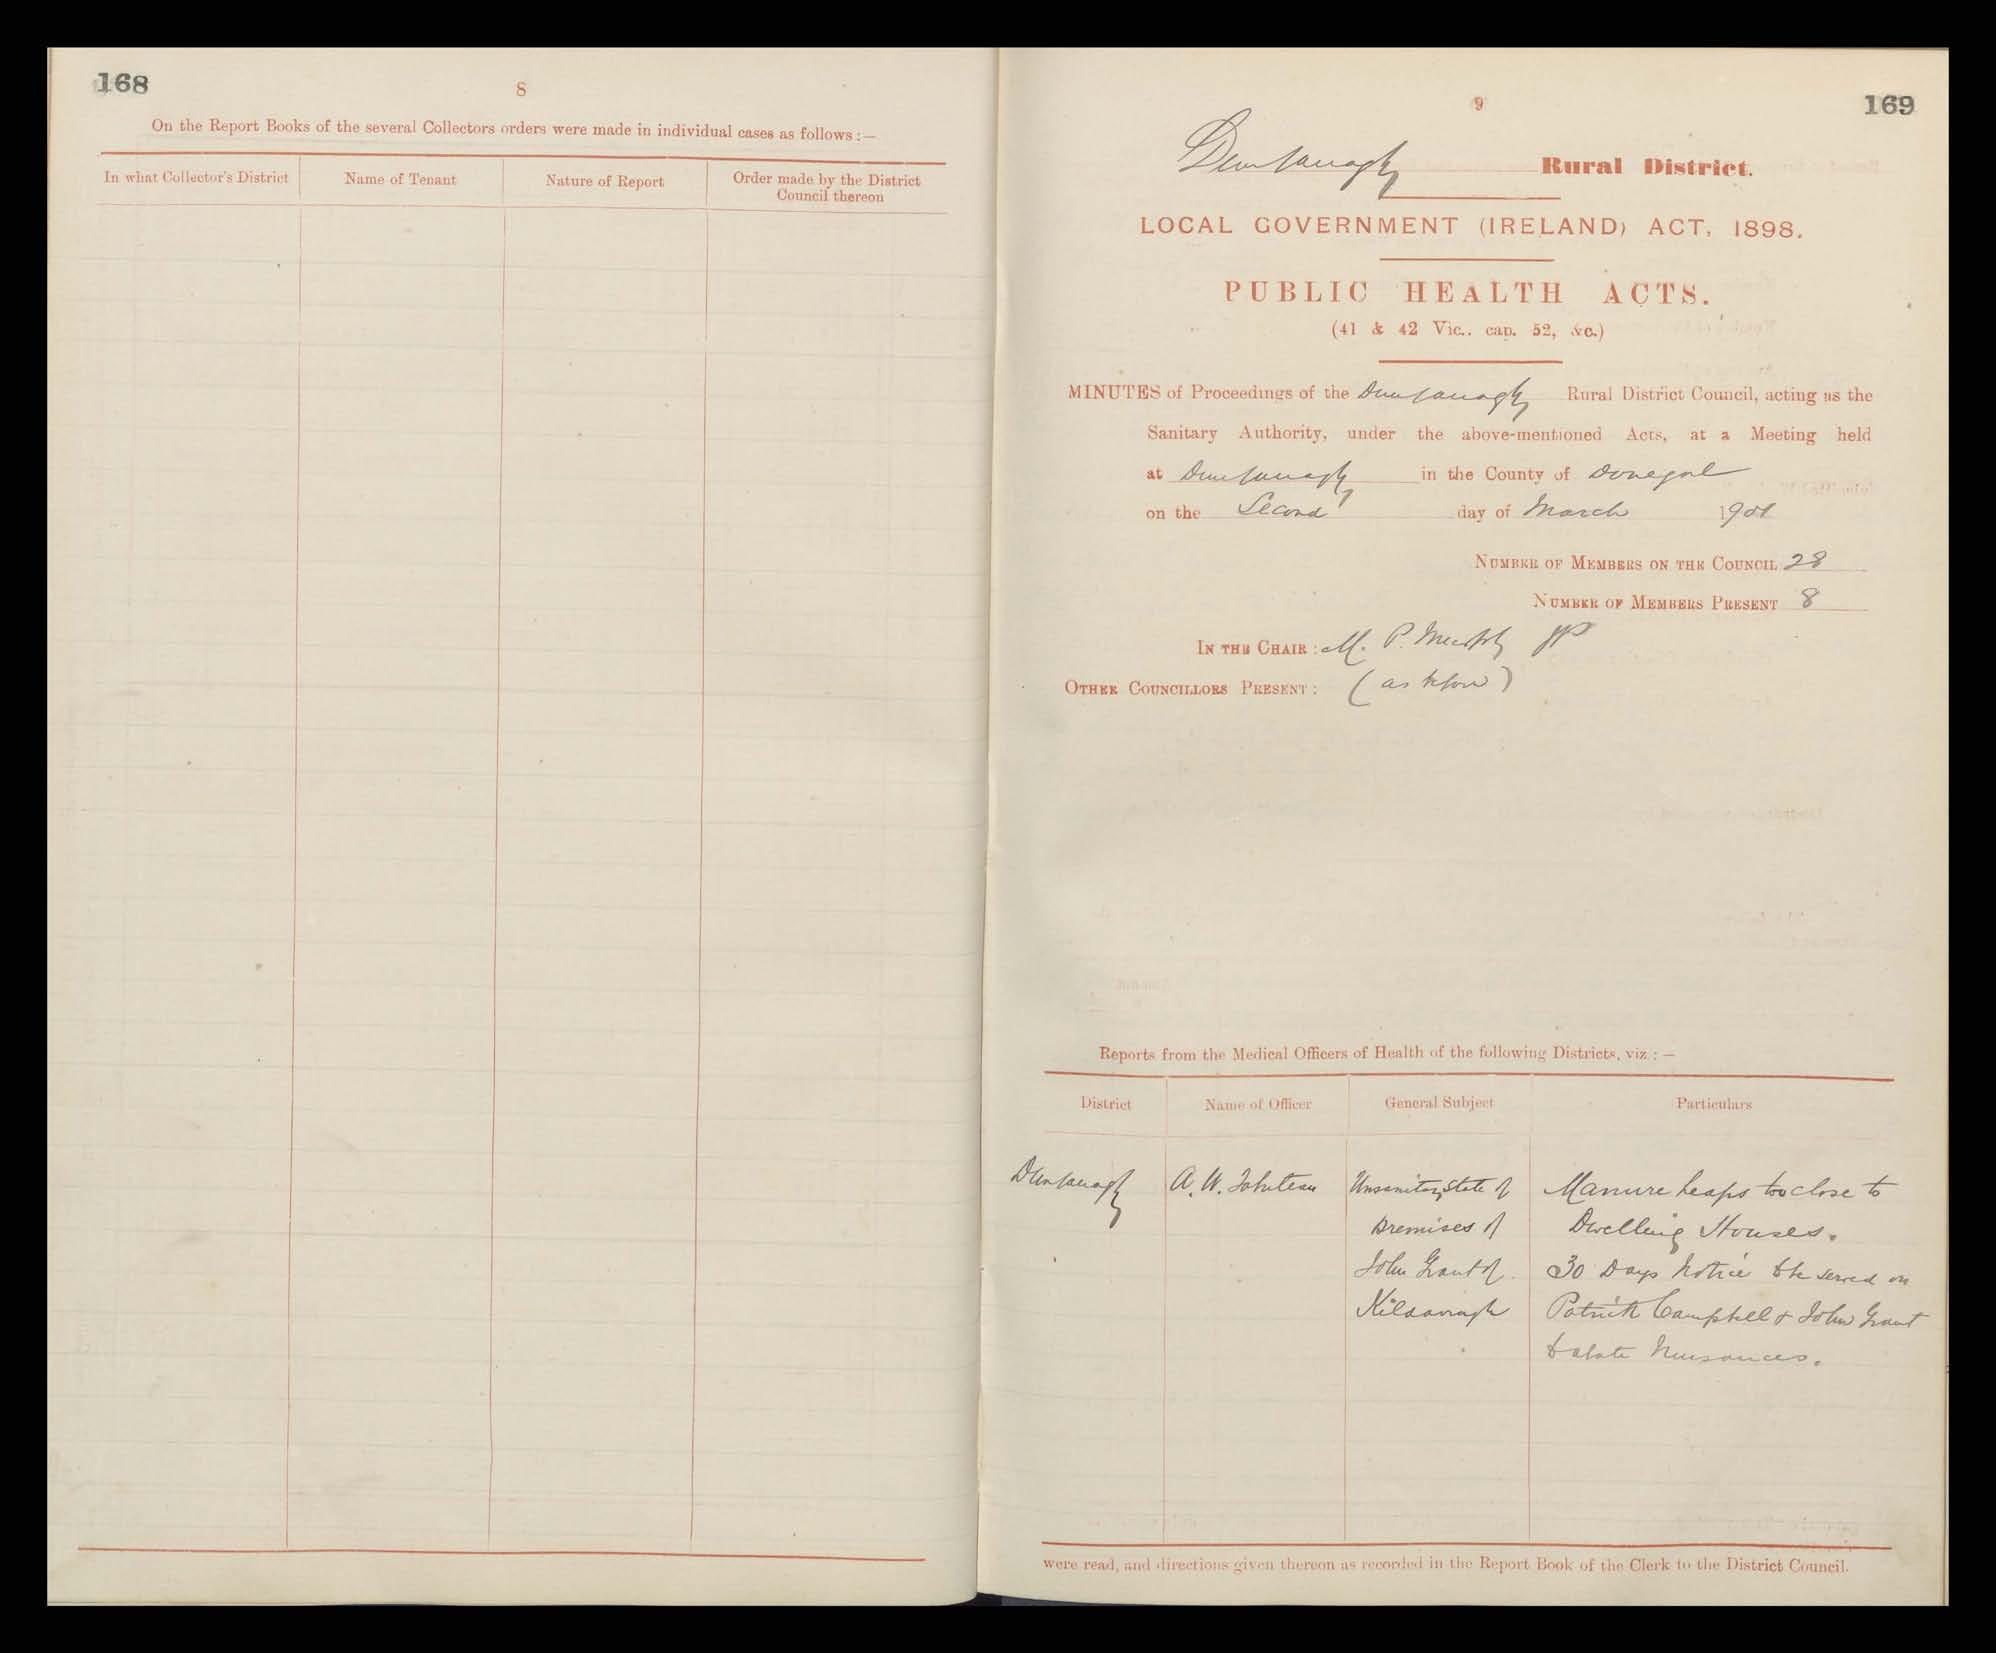 168
8
On the Report Books of the several Collectors orders were made in individual cases as follows :—
In what Collector's District
Name of Tenant
Nature of Report
Order made by the District
Council thereon
169
9
Dunfanaghy Rural District.
LOCAL GOVERNMENT (IRELAND) ACT, 1898.
PUBLIC HEALTH ACTS.
(41 & 42 Vic., cap. 52, &c.)
MINUTES of Proceedings of the Dunfanaghy Rural District Council, acting as the
Sanitary Authority, under the above-mentioned Acts, at a Meeting held
at Dunfanaghy in the County of Donegal
on the Second day of March 1901
NUMBER OF MEMBERS ON THE COUNCIL 28
NUMBER OF MEMBERS PRESENT 8
IN THE CHAIR : M. P. Murphy JP
OTHER COUNCILLORS PRESENT : (as before)
Reports from the Medical Officers of Health of the following Districts, viz. :—
District
Name of Officer
General Subject
Particulars
Dunfanaghy
A. W.
Unsanitary State of
premises of
John Grant of
Manure heaps too close to
Dwelling Houses.
30 Days Notice to be served on
Patrick Campbell & John Grant
to abate Nuisances.
were read, and directions given thereon as recorded in the Report Book of the Clerk to the District Council.